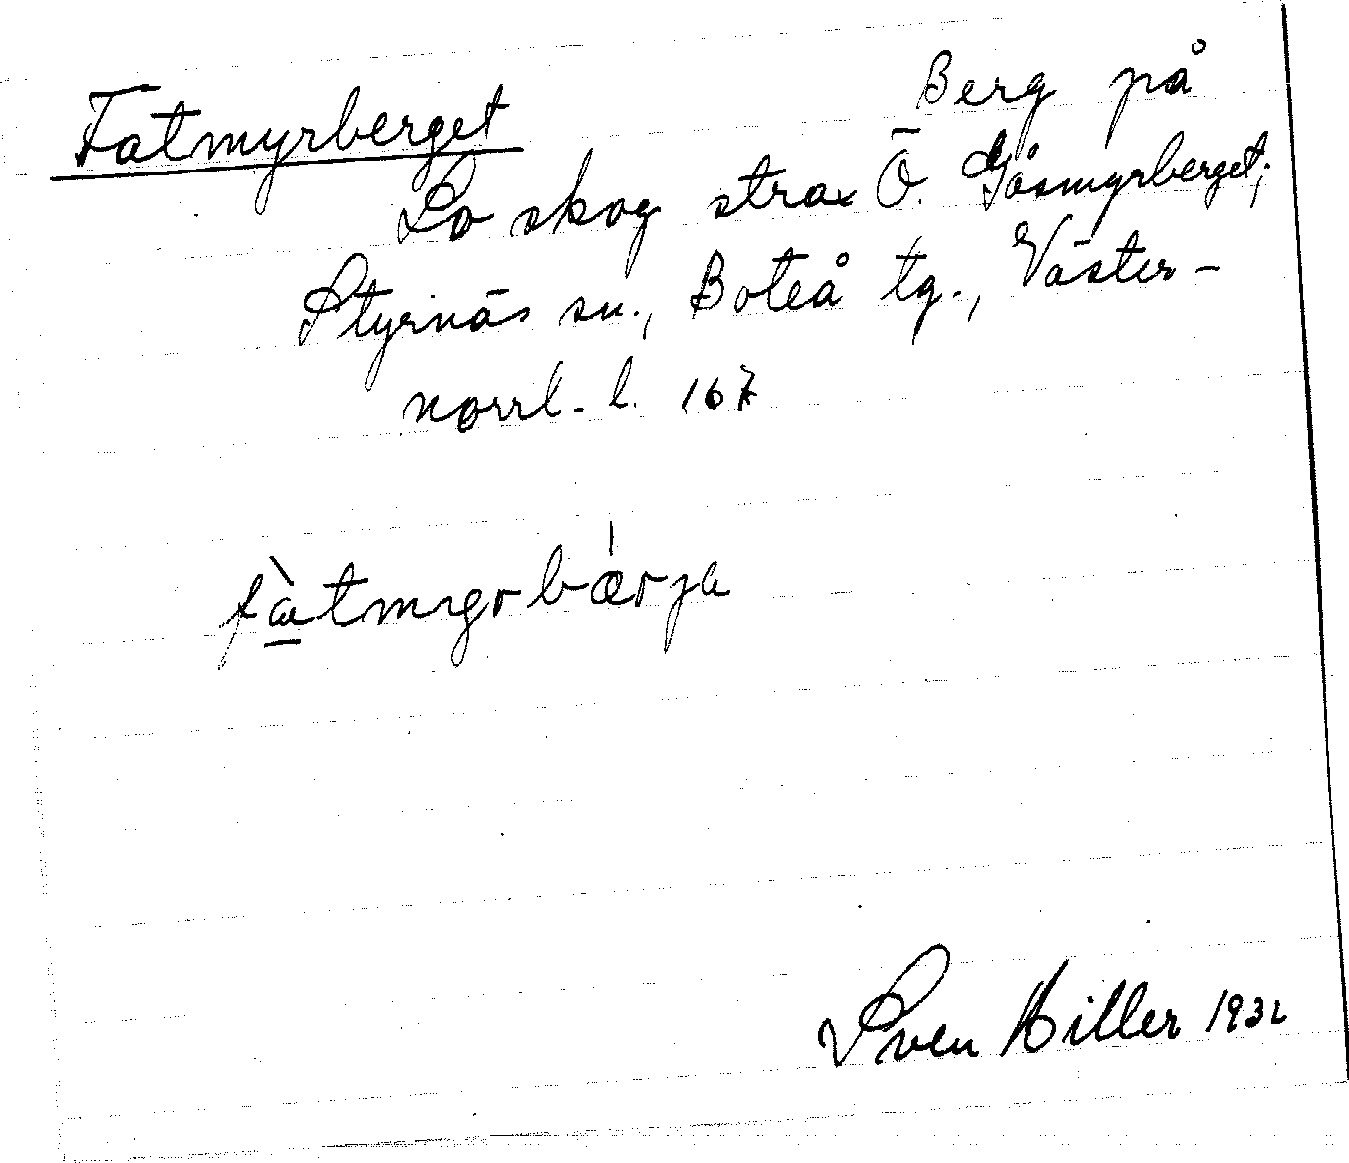 Fatmyrberget
Berg på
Lo skog strax Ö. Gåsmyrberget;
Styrnäs sn., Boteå tg., Väster-
norrl. l. 167
fàtmyrbærja
Sven Hiller 1932